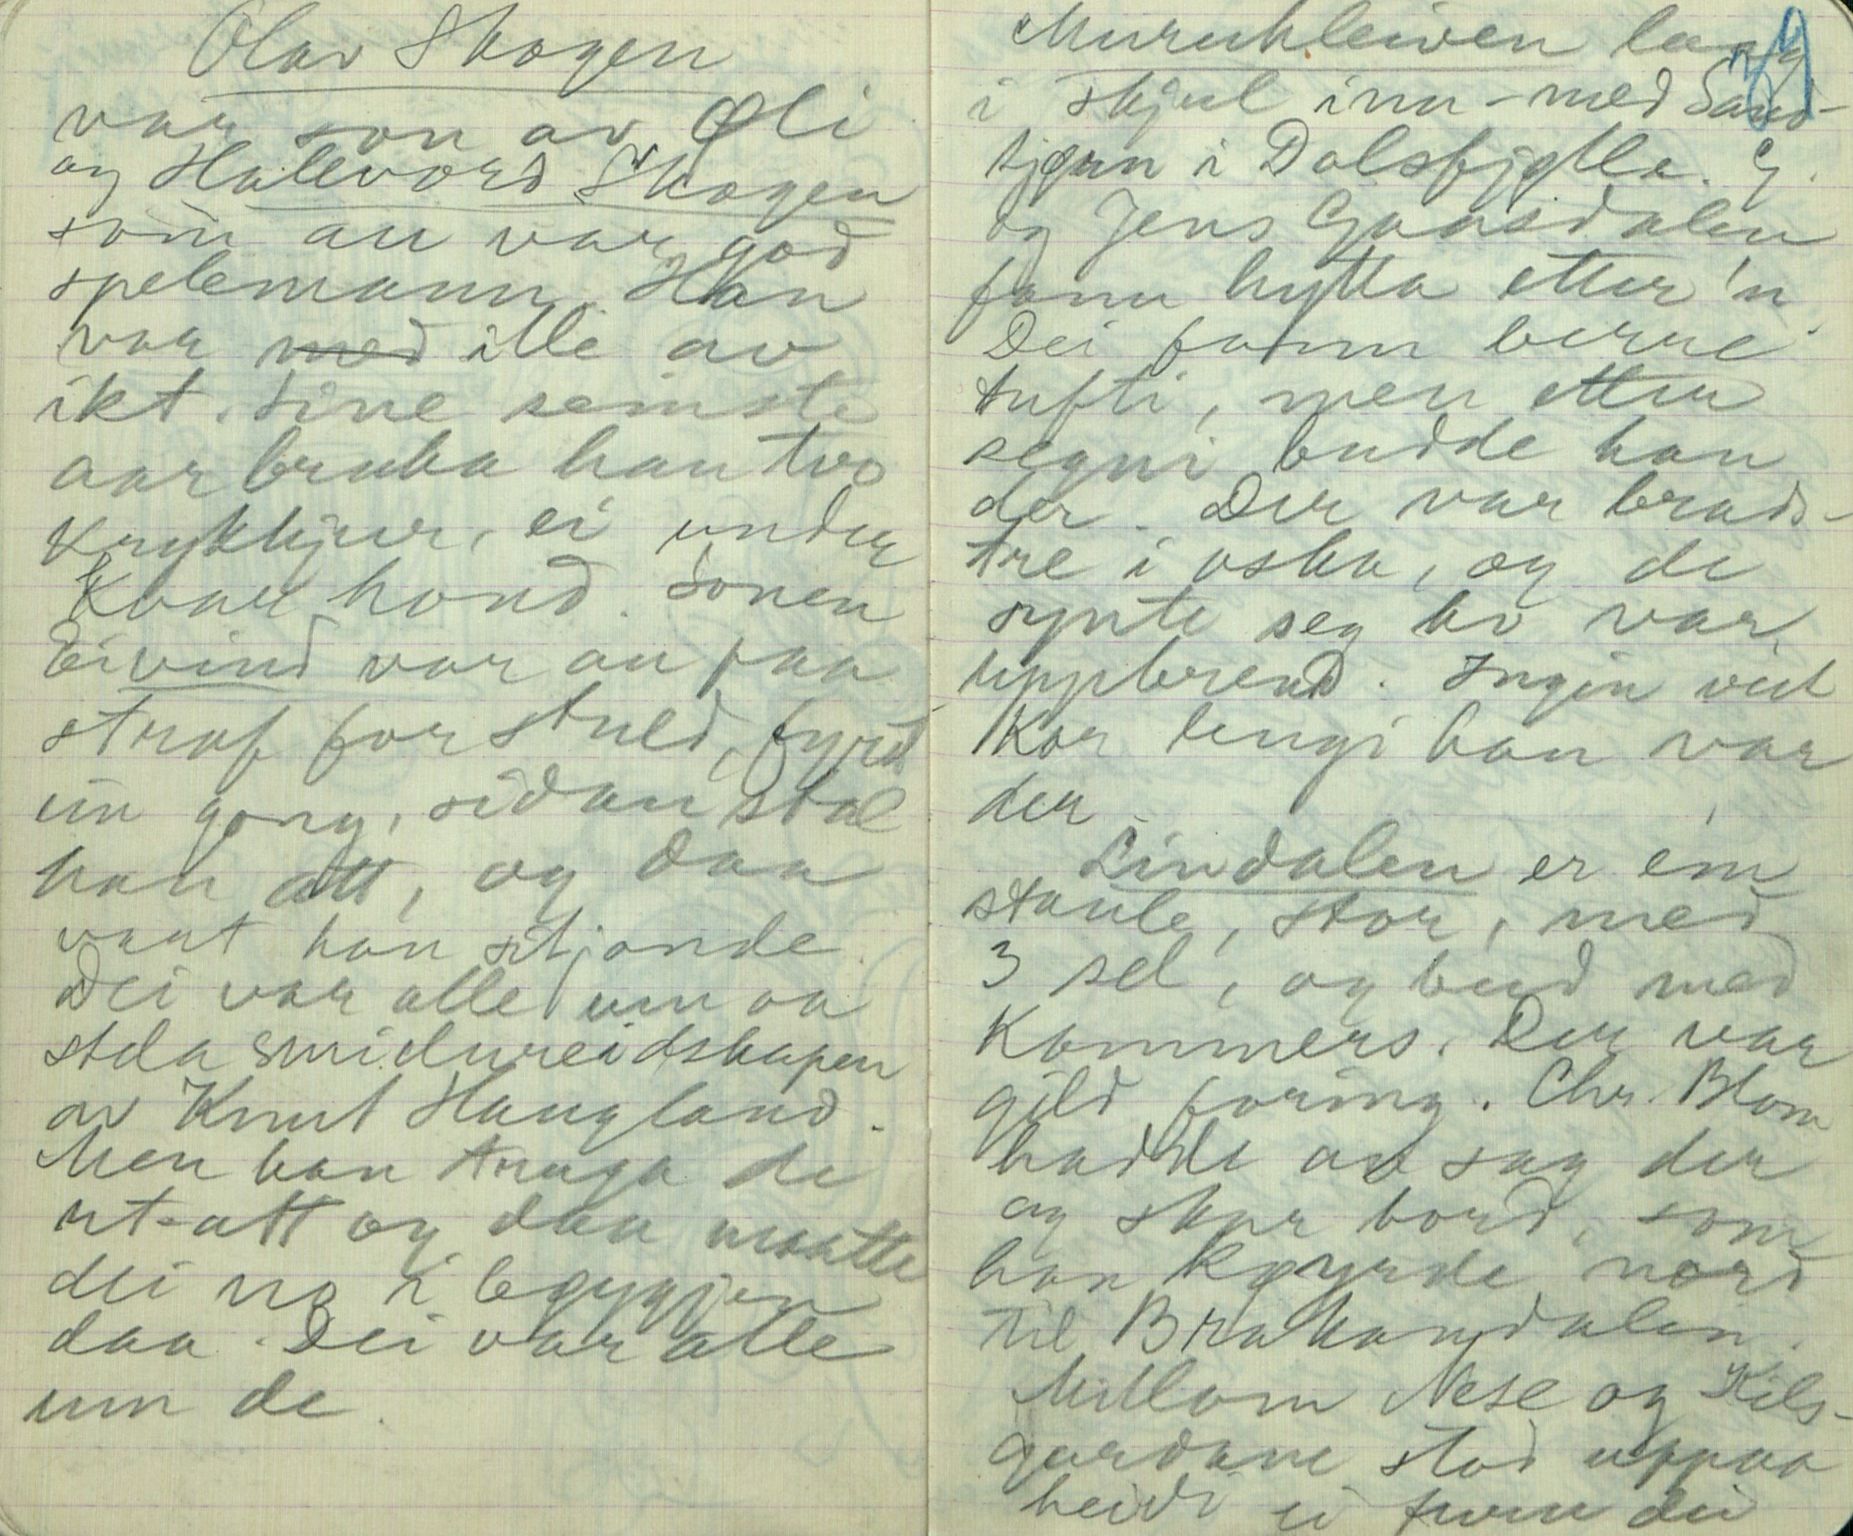 Olav Skogen
var son av Øli
og Halevord Skogen
som au var god
spelemann. Han
var med ille av
ikt. Sine seinste
aar bruka han tvo
Krykkjur, ei under
Kvar hond. Sonen
Eivind var au paa
straf for stuld, fyrst
ein gong, sidan stal
han att, og daa
vart han sitjande.
Dei var alle um aa
stela smidureidskapen
av Knut Haugland.
Men han truga de
ut-att og daa maatte
dei no i
daa. Dei var alle
um de.
Murukleiven laag
i skjul inn-med Sand-
tjørn i Dalsfjølle. G.
og Jens Gaasdalen
fann hytta etter'n.
Dei fann berre
tufti, men etter
segni budde han
der. Der var brads-
tre i oska, og de
synte seg ho var
uppbrend. Ingin veit
Kor lengi han var
der
Lindalen er ein
staule, stor, med
3 sel, og bud med
Kommers. Der var
gild foring. Chr. Blom
hadde av sag der
og skar bord, som
han køyrde nord
til Brakandalen.
Millom Nese og Kils-
gardane stod uppaa
heidi ei furu dei